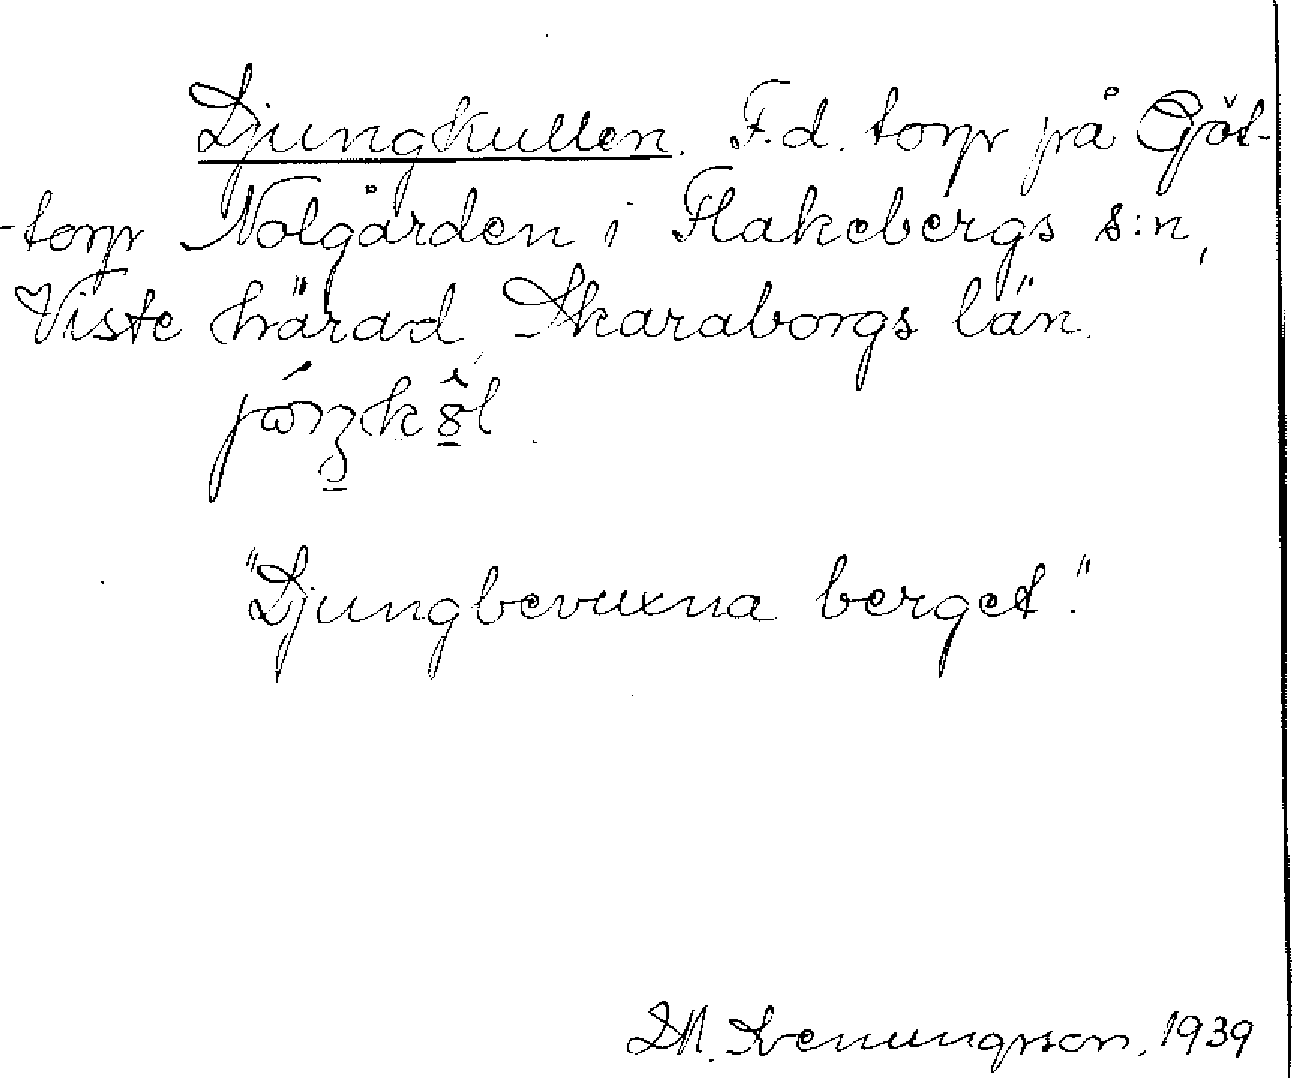 Djungkullen. F.d. torp på Göt-
-torp Nolgården i Flakebergs s:n,
Viste härad, Skaraborgs län.
"Djungbevuxna berget."
1939